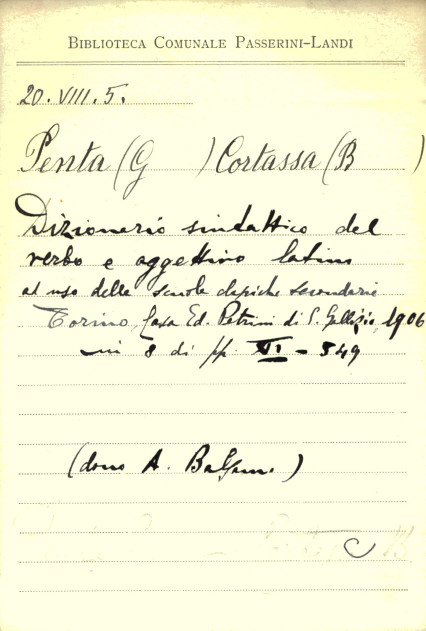 BIBLIOTECA COMUNALE PASSERINI-LANDI
20. VIII. 5.
Penta (G ) Cortassa (B )
Dizionario sintattico del
verbo e aggettivo latino
ad uso delle scuole classiche secondarie
Torino, Casa Ed. Petrini di G. Gallizio, 1906
in 8 di pp. XI - 549
(dono A. Balsam. )